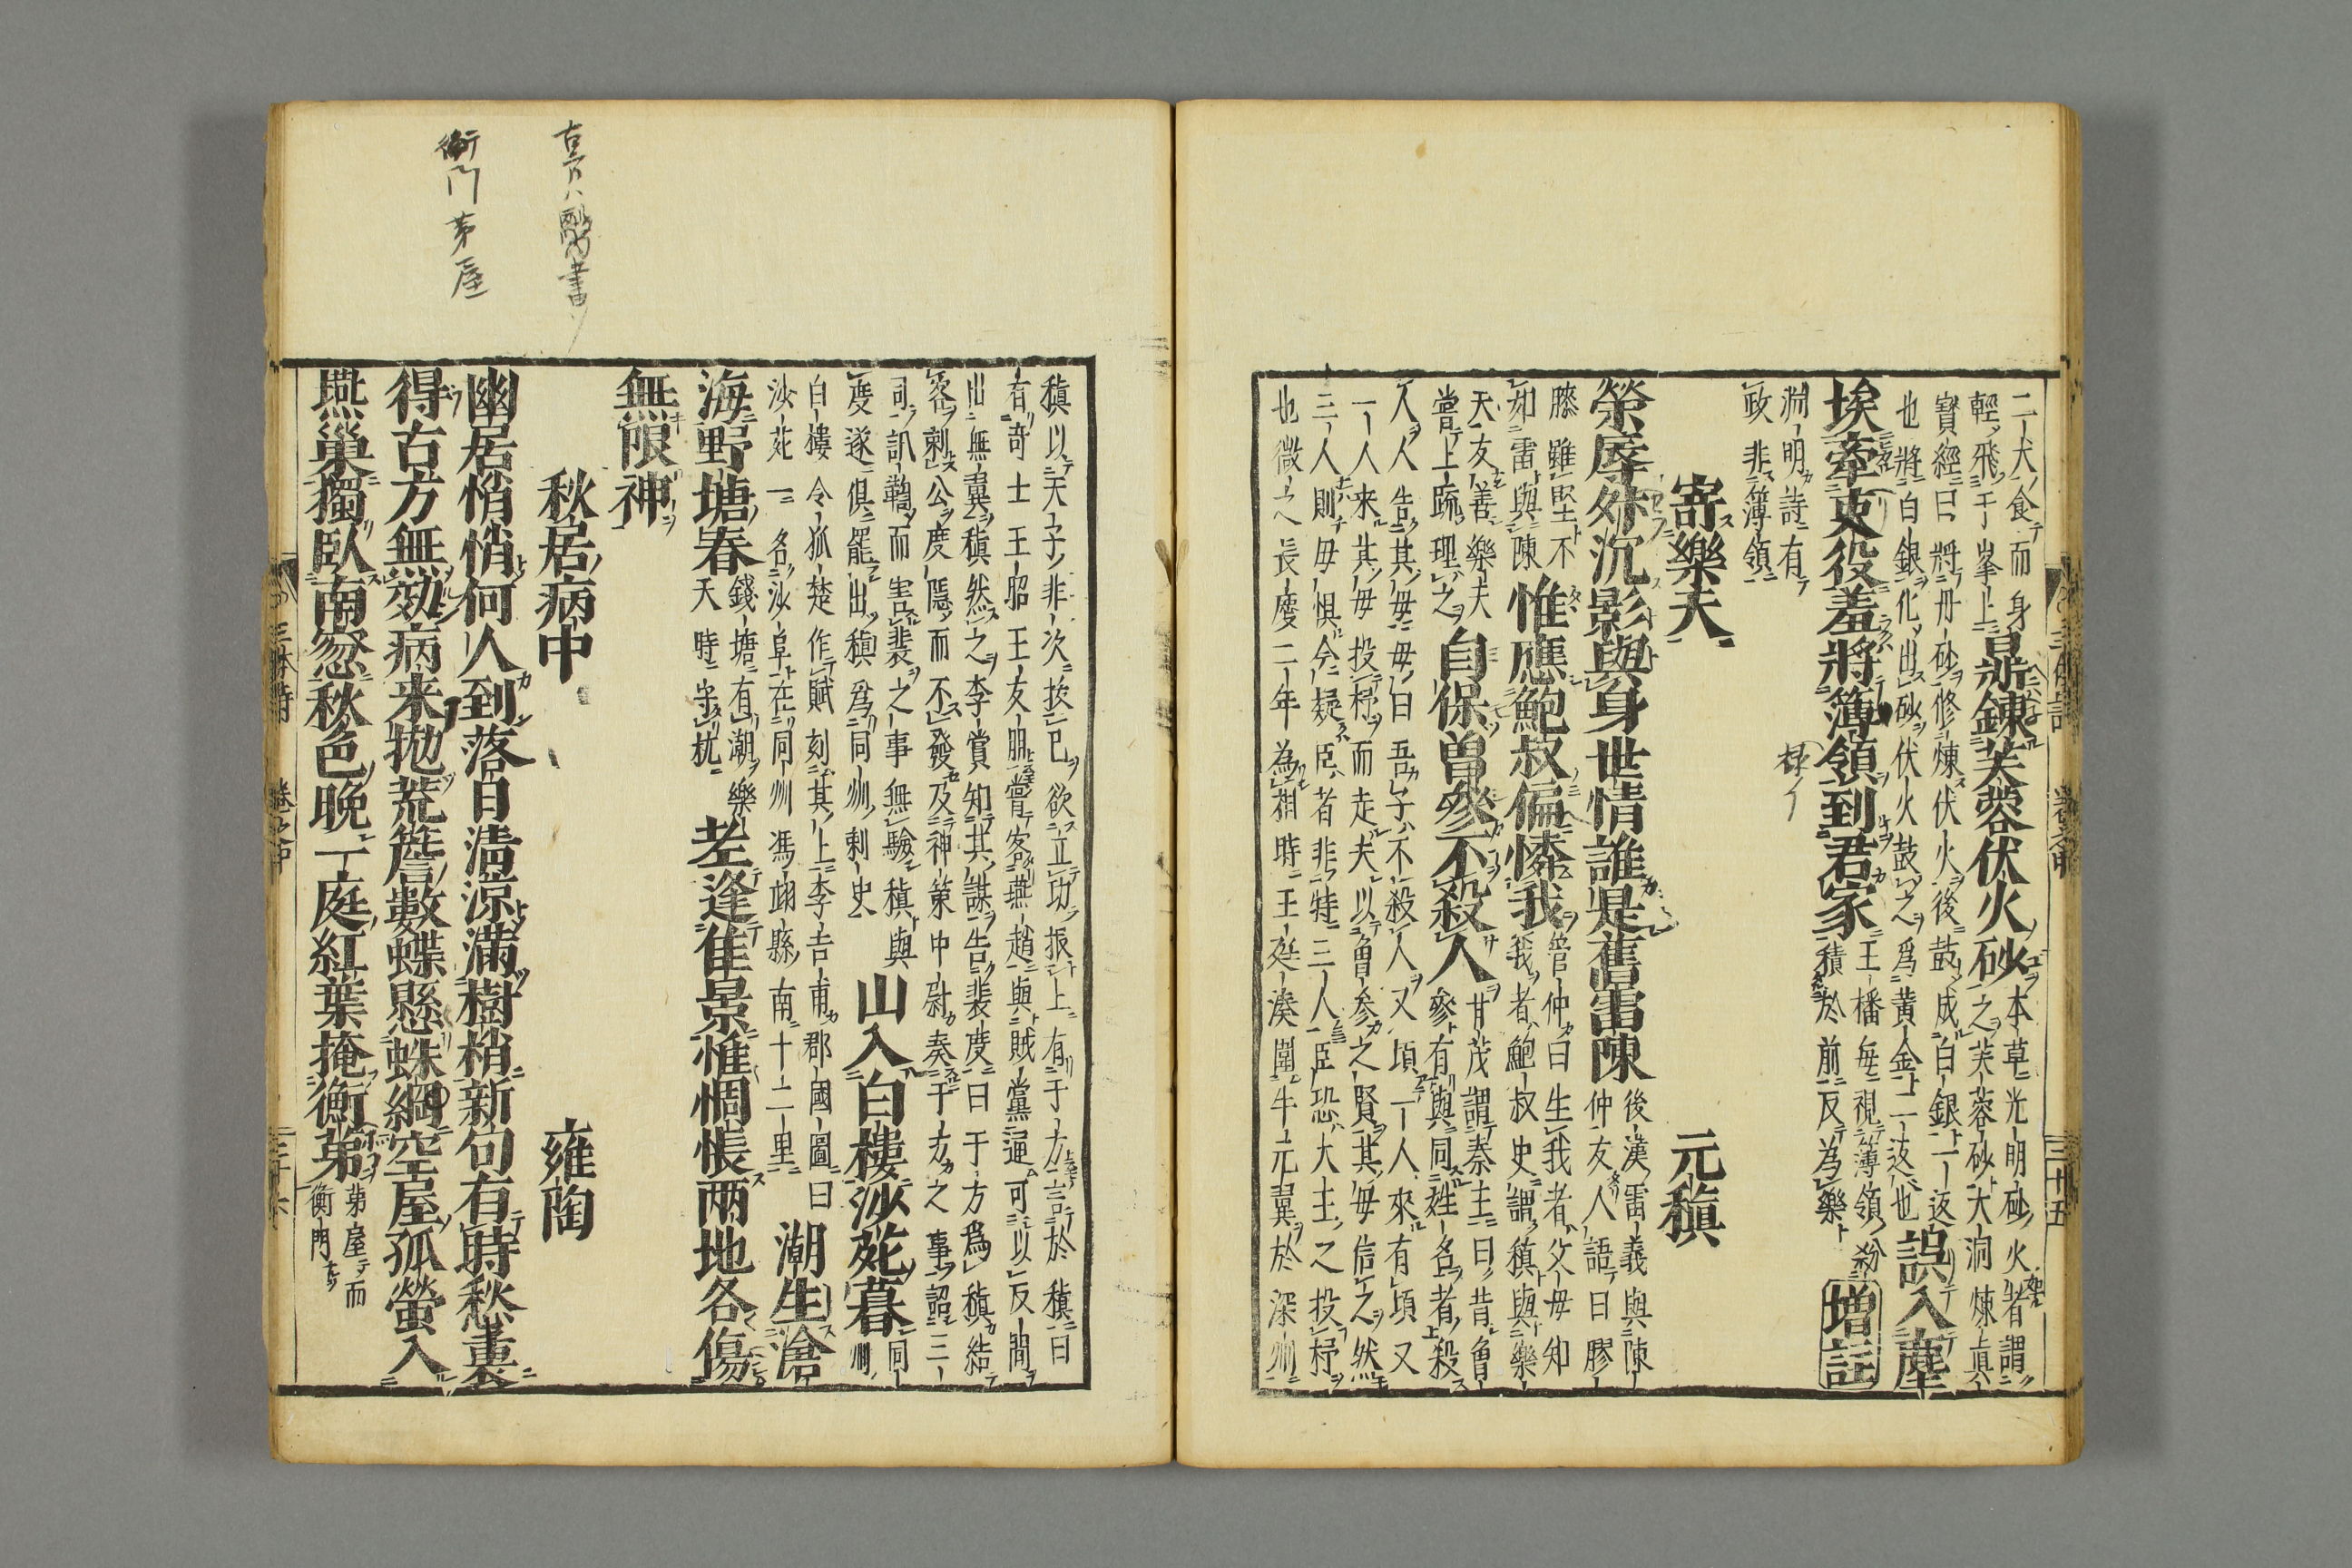 二犬食而身
輕飛于峯上
晨鼎錬芙蓉伏火砂
本草光明砂火者謂
之芙蓉砂大洞煉真
寶經曰將丹砂修煉伏火後鼓成白銀一返
也將白銀化出砂伏火鼓之爲黃金二返也
誤入塵
埃牽吏役羞將簿領到君家
王播毎視簿領紛
積於前反為樂
増註
淵明詩有
政非簿領
寄樂天
元稹
榮辱升沉影與身世情誰是舊雷陳
後漢雷義與陳
仲友人語曰膠
膝雖堅不
如雷與陳
惟應鮑叔偏憐我
管仲曰生我者父毋知
我者鮑叔史謂稹與樂
天友善樂天
嘗上疏理之
自保曽參不殺人
甘茂謂秦主曰昔魯
參有與同姓名者殺
人人告其毋毋曰吾子不殺人又頃一人來有頃又
一人来其毋投杼而走夫以魯参之賢其毋信之然
三人則毋惧今疑臣者非特三人臣恐大主之投杼
也微之長慶二年為相時王庭湊圍牛元翼於深州
稹以天子非次拔已欲立功振上有于方言於稹曰
有奇士王昭王友朋嘗客燕趙與賊黨通可以反間
出無翼稹然之李賞知其謀告裴度曰于方為稹結
客刺公度隱而不發及神策中尉奏于方之事詔三
司訊鞫而害裴之事無驗稹與
度遂俱罷出稹爲同州刺史
山入白樓沙苑暮
同州
白樓令狐楚作賦刻其上李吉甫郡國圖曰
沙苑一名沙阜在同州馮翊縣南十二里
潮生滄
海野塘春
錢塘有潮樂
天時守杭
老逢佳景惟惆悵两地各傷
無限神
秋居病中
雍陶
幽居悄悄何人到落日清涼滿樹梢新句有時愁裏
得古方無効病来抛荒簷數蝶懸蛛網空屋孤螢入
燕巣獨臥南窓秋色晩一庭紅葉掩衡茅
茅屋而
衡門
衡門茅屋
三体詩
卷之中
三十五